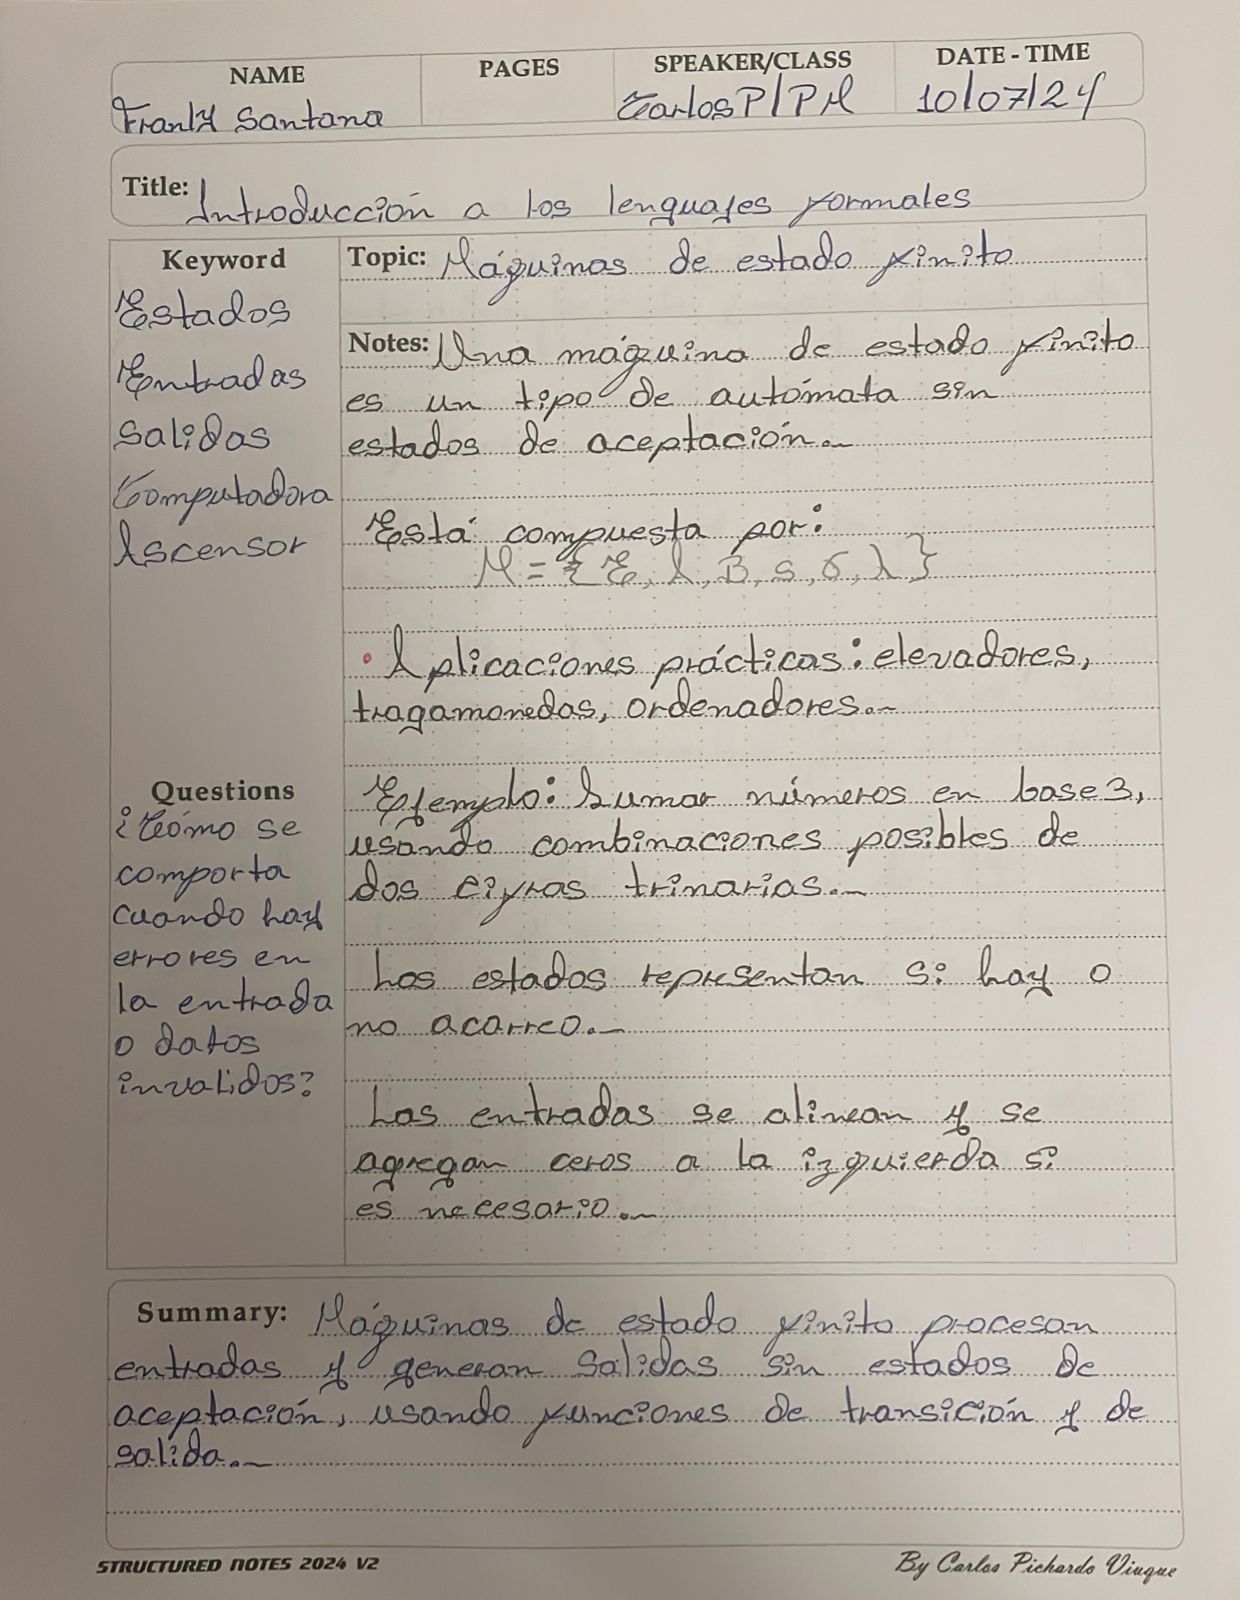 NAME
PAGES
SPEAKER/CLASS
DATE - TIME
Frankly Santana
CarlosP/PM
10/07/24
Title: Introducción a los lenguajes formales
Keyword
Estados
Entradas
Salidas
Computadora
Ascensor
Questions
¿Cómo se
comporta
cuando hay
errores en
la entrada
o datos
invalidos?
Topic: Máquinas de estado finito
Notes: Una máquina de estado finito
es un tipo de autómata sin
estados de aceptación.-
Está compuesta por:
M = { E, A, B, s, σ, λ }
• Aplicaciones prácticas: elevadores,
tragamonedas, ordenadores.-
Ejemplo: Sumar números en base 3,
usando combinaciones posibles de
dos cifras trinarias.-
Los estados representan si hay o
no acarreo.-
Las entradas se alinean y se
agregan ceros a la izquierda si
es necesario.-
Summary: Máquinas de estado finito procesan
entradas y generan salidas sin estados de
aceptación, usando funciones de transición y de
salida.-
STRUCTURED NOTES 2024 V2
By Carlos Pichardo Viuque